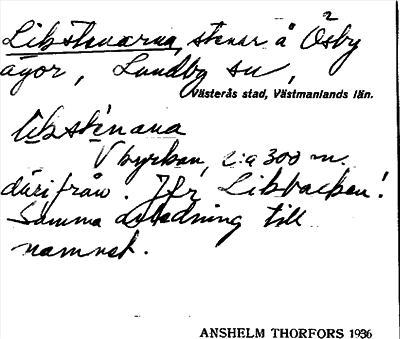 Likstenarna, stenar å Ösby
ägor, Lundby sn,
Västerås stad, Västmanlands län.
likstenana
V kyrkan, c:a 300 m.
därifrån. Jfr Likbacken!
Samma anledning till
namnet.
ANSHELM THORFORS 1936